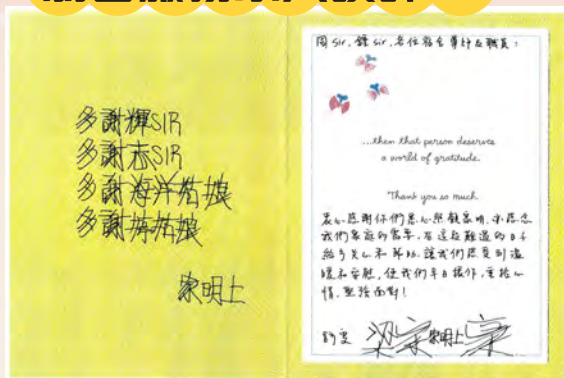 多謝輝SIR
多謝志SIR
多謝海洋姑娘
多謝姑娘
家明上
周sir, 鍾sir, 各位宿舍導師及職員：
...then that person deserves
a world of gratitude.
Thank you so much.
衷心感謝你們悉心照顧家明，亦思念
我們家庭的需要，在這段難過的日子
給予關心和幫助，讓我們感受到溫
暖和安慰，使我們平日操作，重拾心
情，堅強面對！
梁家 家明上